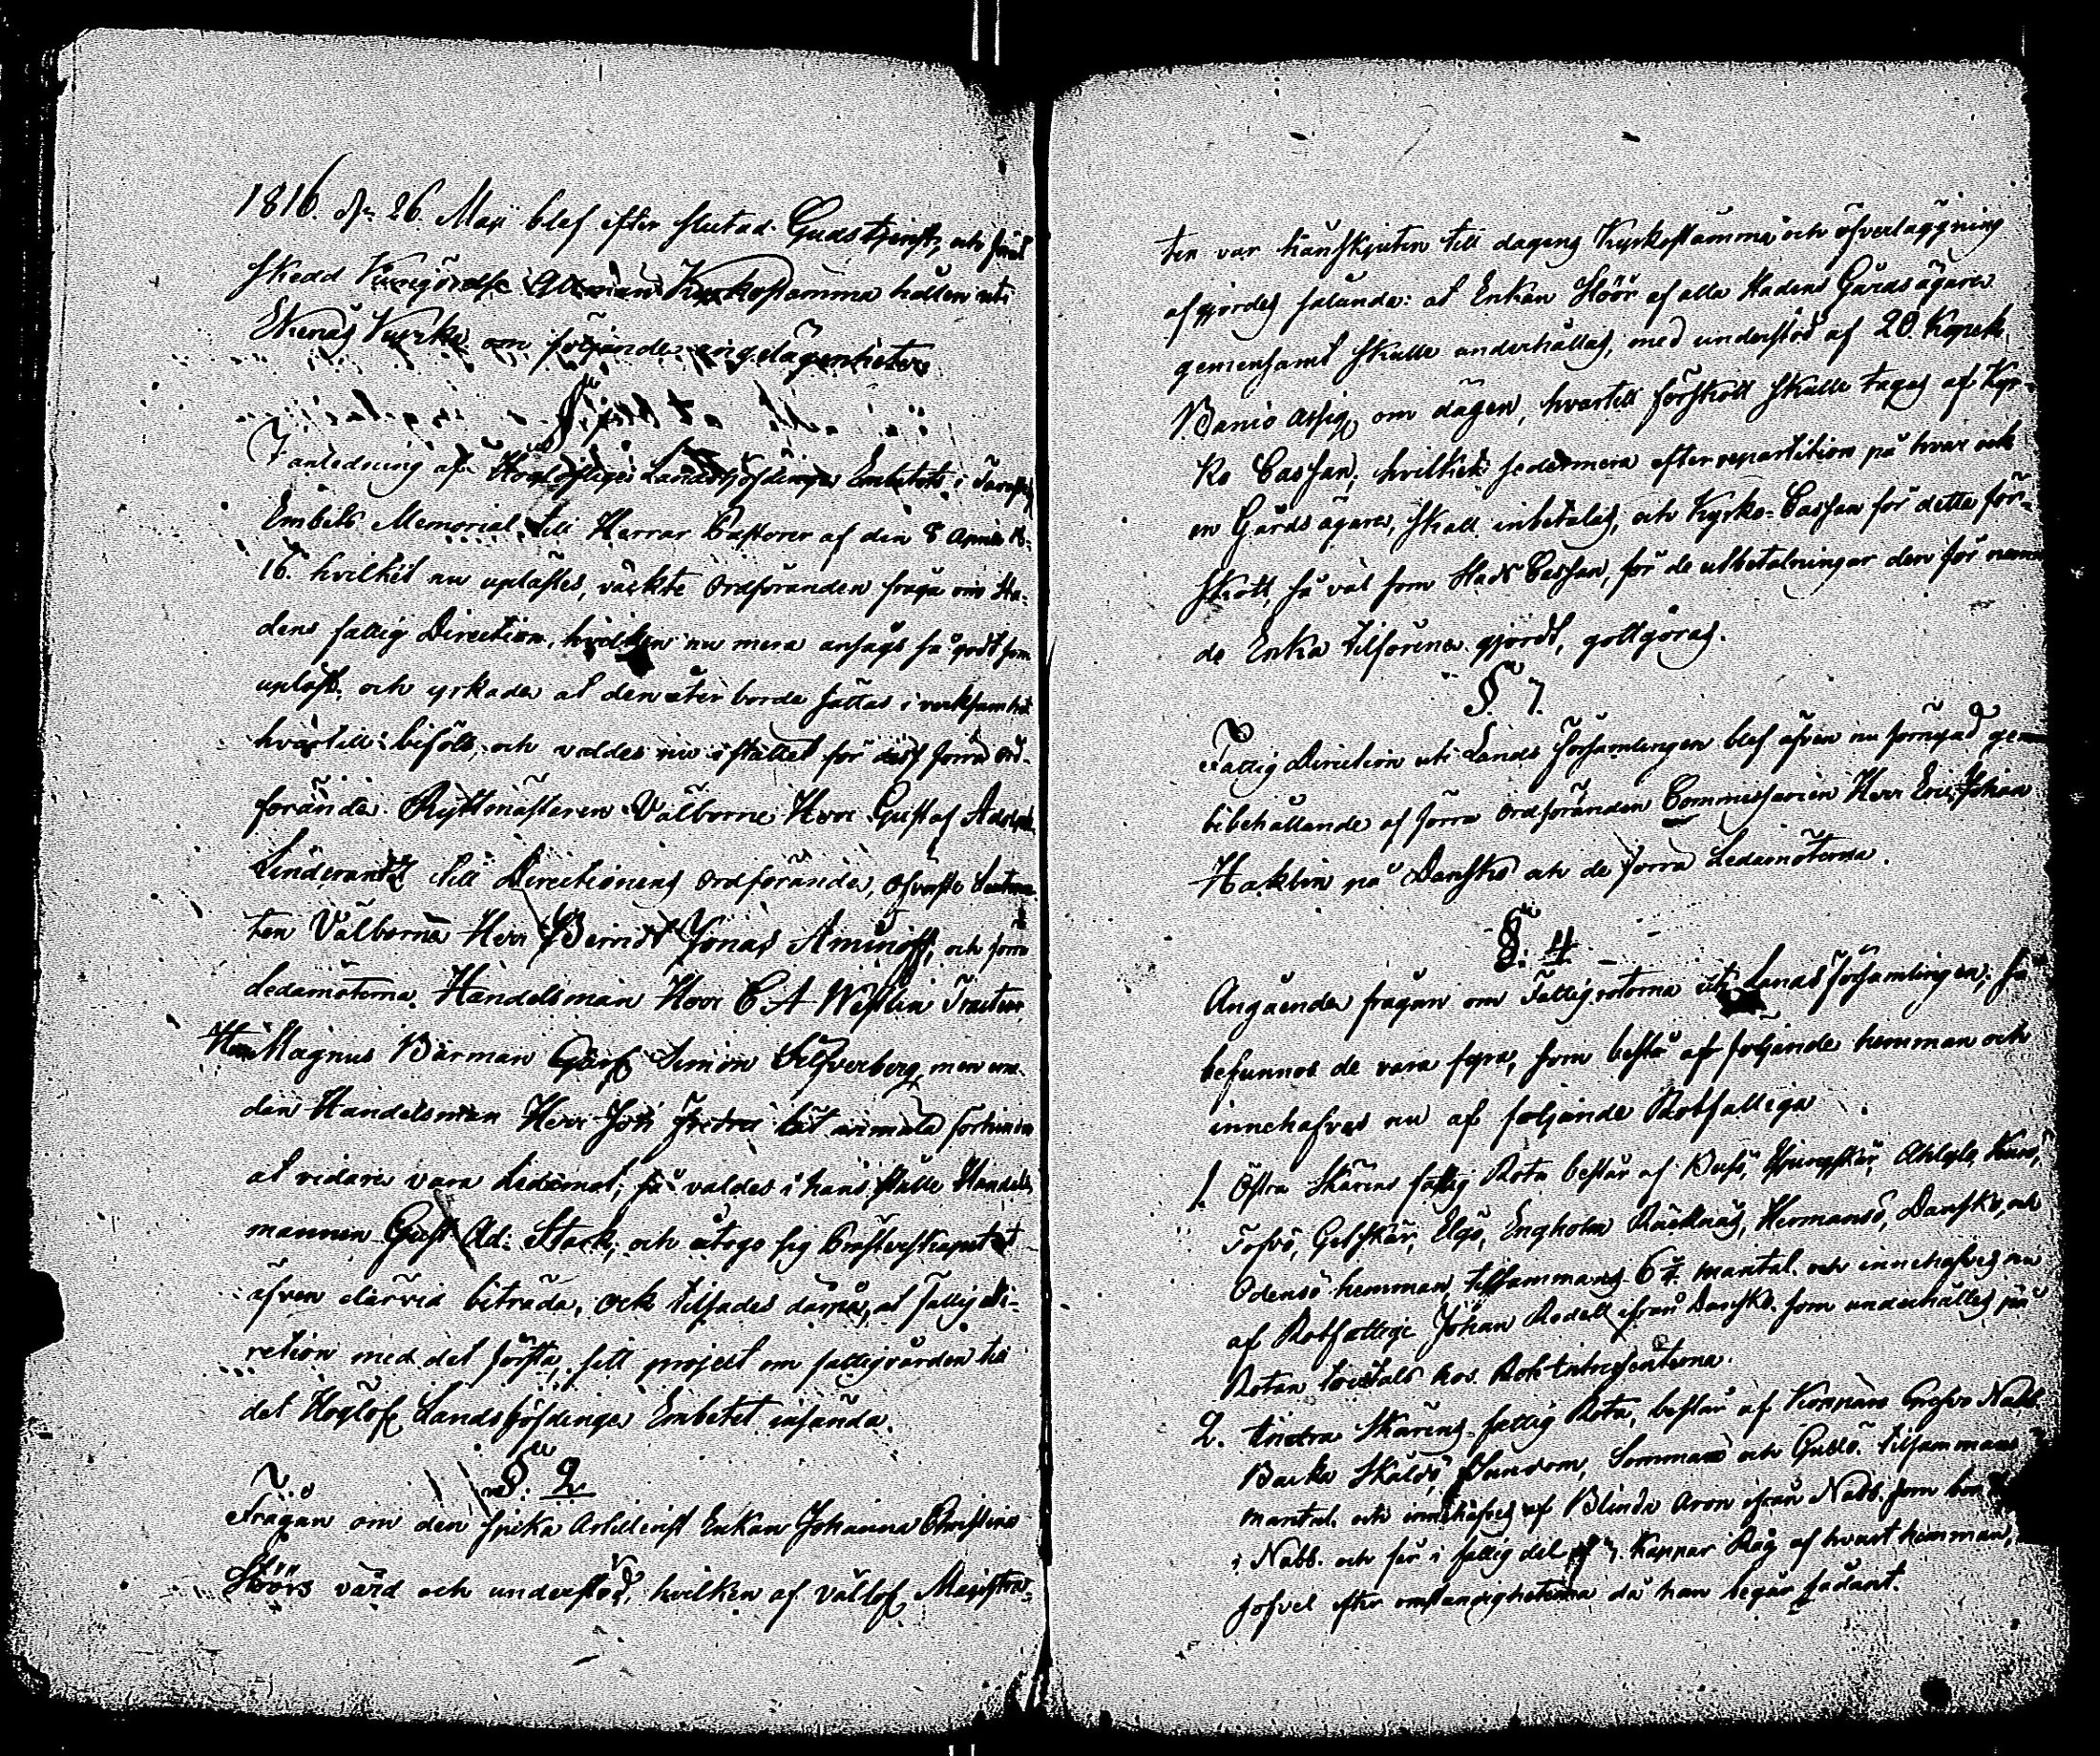 1816. d. 26. Maji blef efter slutad Gudstjenst, och förut
skedd Kungörelse Allmän Kyrkostämma hållen uti
Ekenäs Kyrka om följande angelägenheter
I anledning af Höglofliga Landshöfdinge Embetets i
Embets Memorial till Herrar Pastorer af den 8 April 18-
16. hvilket nu uplästes, väckte Ordföranden fråga om Sta-
dens fattig Direction, hvilken nu mera ansågs så godt som
uplöst. och yrkade at den åter borde sättas i verksamhet
hvartill biföls, och valdes nu i stället för dess förra Ord-
förande Ryttmästaren Välborne Herr Gustaf Adolph
till Directionens Ordförande, Öfverste Lieutnan-
ten Välborne Herr Berndt Jonas Aminoff, och förra
Ledamöterna Handelsman Herr C. A. Westlin
Herr Magnus Bärman Simon Silfverberg, men em-
dan Handelsman Herr Joh lät anmäla
at vidare vara Ledamot; så valdes i hans ställe Handels
mannen Gust Ad: Stark, och åtogo sig Presterskapet at
äfven därvid biträda, ock tilsades därpå, at fattig di-
retion med det första, sitt projekt om fattigvården til
det Höglofl. Landshöfdinge Embetet insända.
§. 2
Frågan om den Enkan Johanna Christina
Höörs vård och understöd, hvilken af vällofl. Magistra-
ten var hänskjuten till dagens Kyrkostämma och öfverläggning
afgjordes sålunda: at Enkan Höör af alla Stadens Gårdsägare
gemensamt skulle underhållas, med understöd af 20. Kopek
Banco Assig. om dagen, hvartill förskott skulle tagas af Kyr-
ko Cassan, hvilket sedermera efter repartition på hvar och
en Gårds ägare, skall inbetalas, och Kyrko-Cassan för detta för-
skott, så väl som Stads Cassan, för de utbetalningar den för nämn
de Enka tilförene gjordt, gottgöras.
§. 3.
Fattig Direction uti Lands Församlingen blef äfven nu förnyad genom
bibehållande af förra Ordföranden Commissarien Herr Eric Johan
Haklin på Danskö och de förra Ledamöterna.
§. 4
Angående frågan om Fattigrotorna uti Lands församlingen; så
befunnos de vara fyra, som bestå af följande hemman och
innehafves nu af följande Rotfattiga
1. Östra Skärens fattig Rota består af Busö,
Tofsö, Getskär, Elgö, Engholm Räcknäs, Hermansö, Danskö, och
Odensö hemman, tillsammans mantal. och innehafves nu
af Rotfattige Johan Rodell ifrån Danskö som underhålles på
Rotan hos Rot Intressenterna.
2. Skärens fattig Rota, består af
Backa Skåldö Sundom, Sommarö och Gullö. tilsammans
mantal. och innehafves af Blinda Aron ifrån Nabb. som bor
i Nabb. och får i fattig del 3. Kappar Råg af hvart hemman,
jofvel efter omständigheterna då han begär sådant.